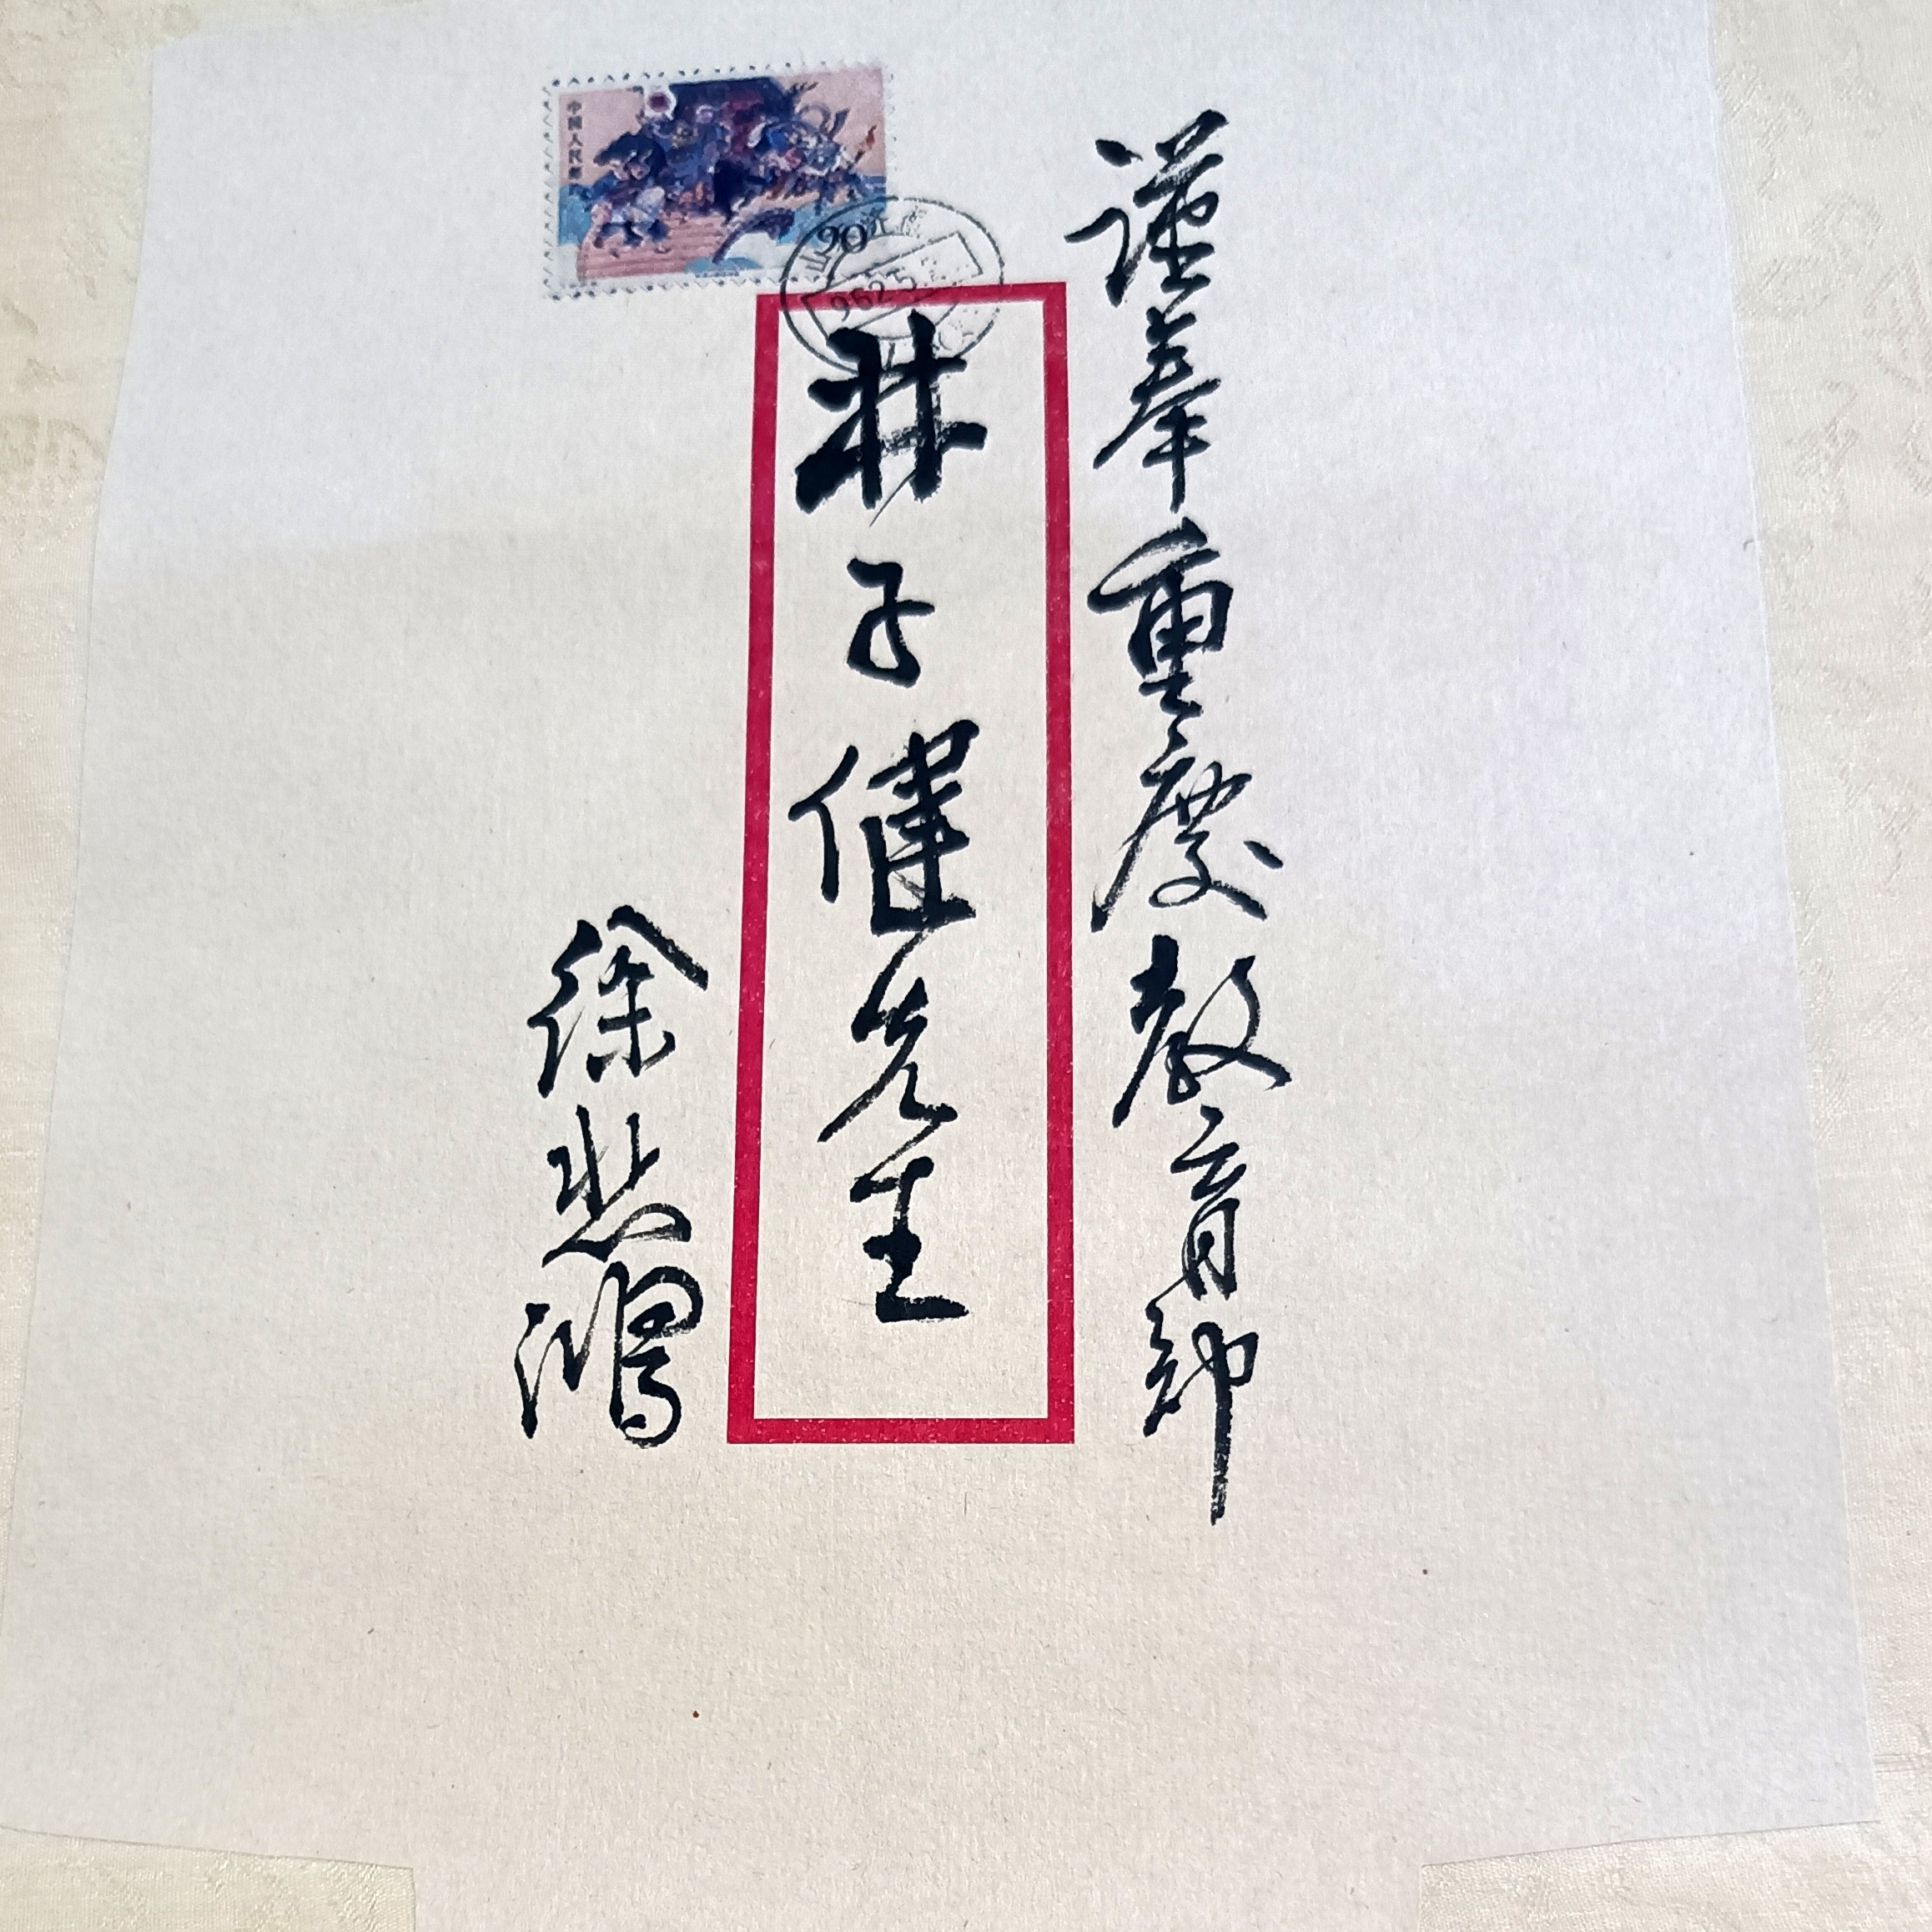 謹奉重慶教育部
林子催先生
徐悲鴻
中国人民邮政
20